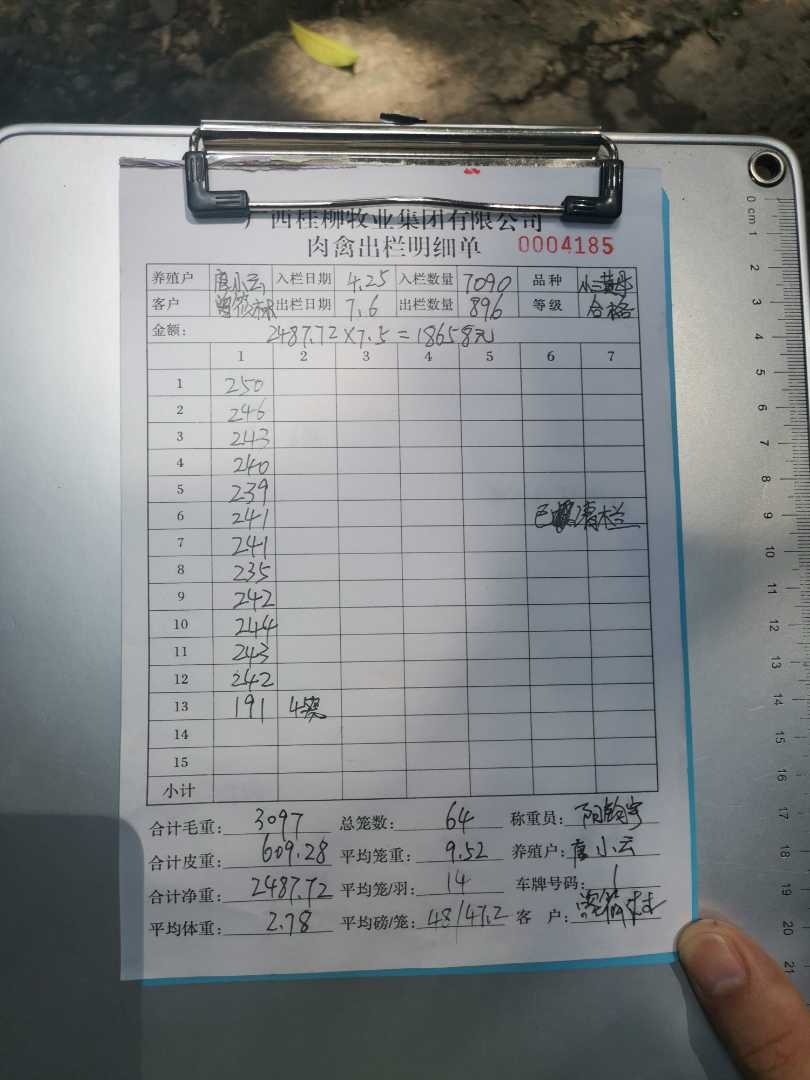 广西桂柳牧业集团有限公司
肉禽出栏明细单 0004185
养殖户 唐小云 入栏日期 4.25 入栏数量 7090 品种 小三黄母
客户 出栏日期 7.6 出栏数量 896 等级 合格
金额: 2487.72×7.5=18658元
1 2 3 4 5 6 7
1 250
2 246
3 243
4 240
5 239
6 241 已清栏
7 241
8 235
9 242
10 244
11 243
12 242
13 191 4
14
15
小计
合计毛重: 3097 总笼数: 64 称重员:
合计皮重: 609.28 平均笼重: 9.52 养殖户: 唐小云
合计净重: 2487.72 平均笼/羽: 14 车牌号码: 1
平均体重: 2.78 平均磅/笼: 48/47.2 客 户:
0 cm 1 2 3 4 5 6 7 8 9 10 11 12 13 14 15 16 17 18 19 20 21